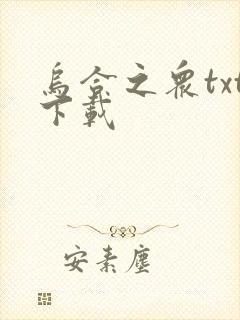 烏合之衆txt
下載
安素塵